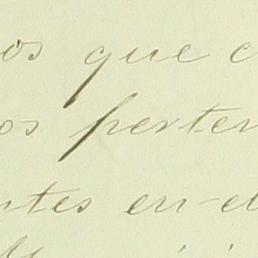 os que c
os perten
ntes en-el